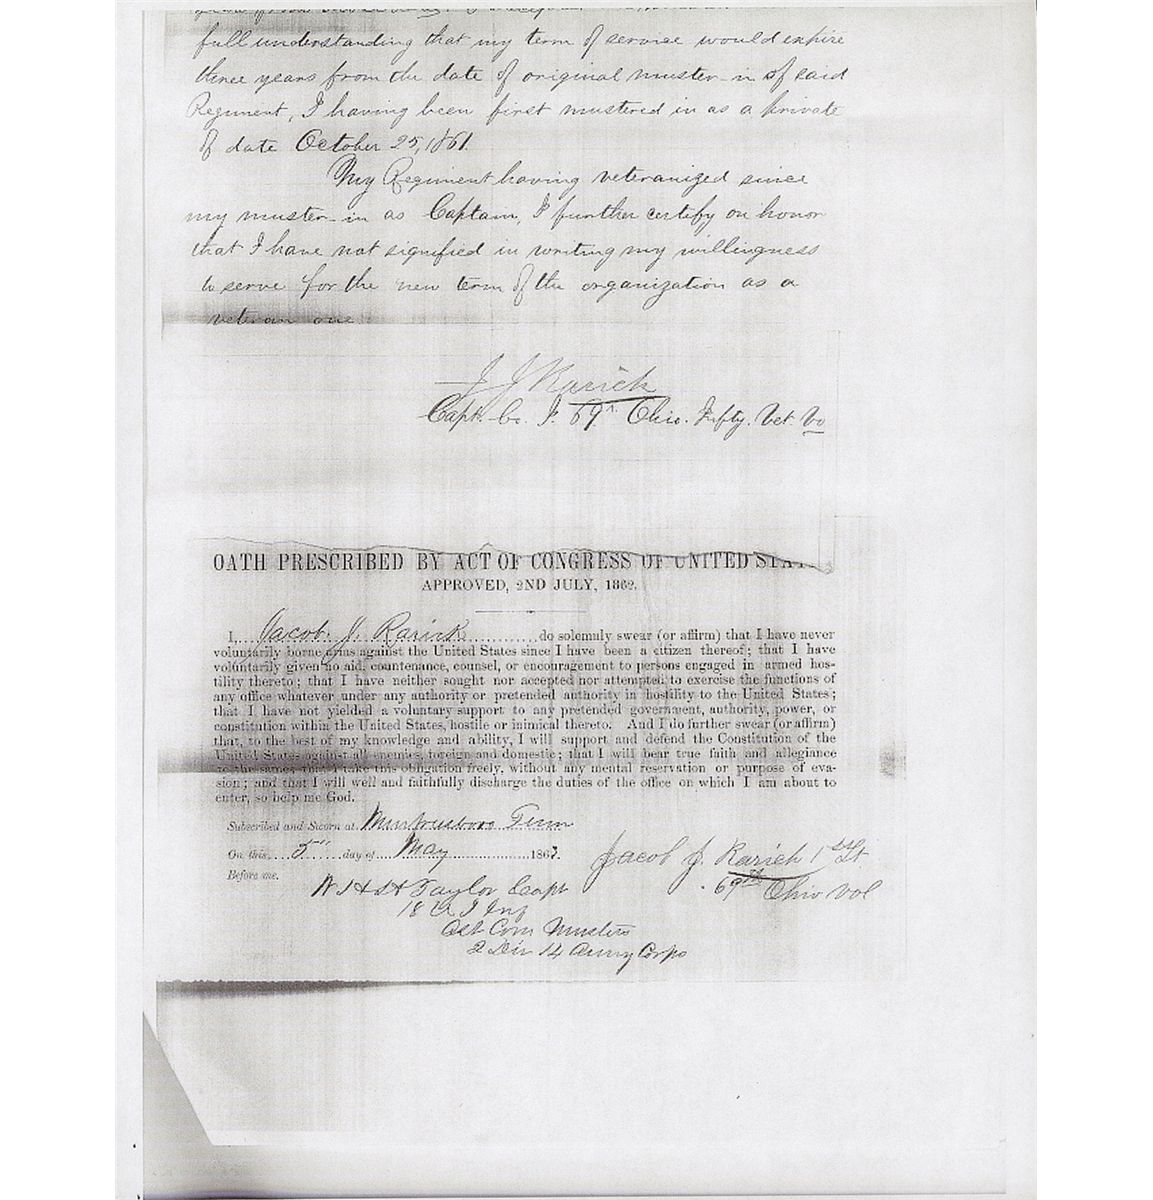 full understanding that my term of service would expire
three years from the date of original muster-in of said
Regiment, I having been first mustered in as a private
of date October 25, 1861.
My Regiment having veteranized since
my muster-in as Captain, I further certify on honor
that I have not signified in writing my willingness
to serve for the new term of the organization as a
veteran one.
J J Rarick
Capt. Co. I. 69th Ohio. Infty. Vet. Vo
OATH PRESCRIBED BY ACT OF CONGRESS OF UNITED STA
APPROVED, 2ND JULY, 1862.
I, Jacob. J. Rarick do solemnly swear (or affirm) that I have never
voluntarily borne arms against the United States since I have been a citizen thereof; that I have
voluntarily given no aid, countenance, counsel, or encouragement to persons engaged in armed hos-
tility thereto; that I have neither sought nor accepted nor attempted to exercise the functions of
any office whatever under any authority or pretended authority in hostility to the United States;
that I have not yielded a voluntary support to any pretended government, authority, power, or
constitution within the United States, hostile or inimical thereto. And I do further swear (or affirm)
that, to the best of my knowledge and ability, I will support and defend the Constitution of the
United States against all enemies, foreign and domestic; that I will bear true faith and allegiance
to the same; that I take this obligation freely, without any mental reservation or purpose of eva-
sion; and that I will well and faithfully discharge the duties of the office on which I am about to
enter, so help me God.
Subscribed and Sworn at Murfreesboro Tenn
On this 5" day of May 1863.
Jacob J. Rarick 1st Lt
69th Ohio Vol
Before me.
Taylor Capt
18 U S Inf
Ast Com Musters
2 Div 14 Army Corps